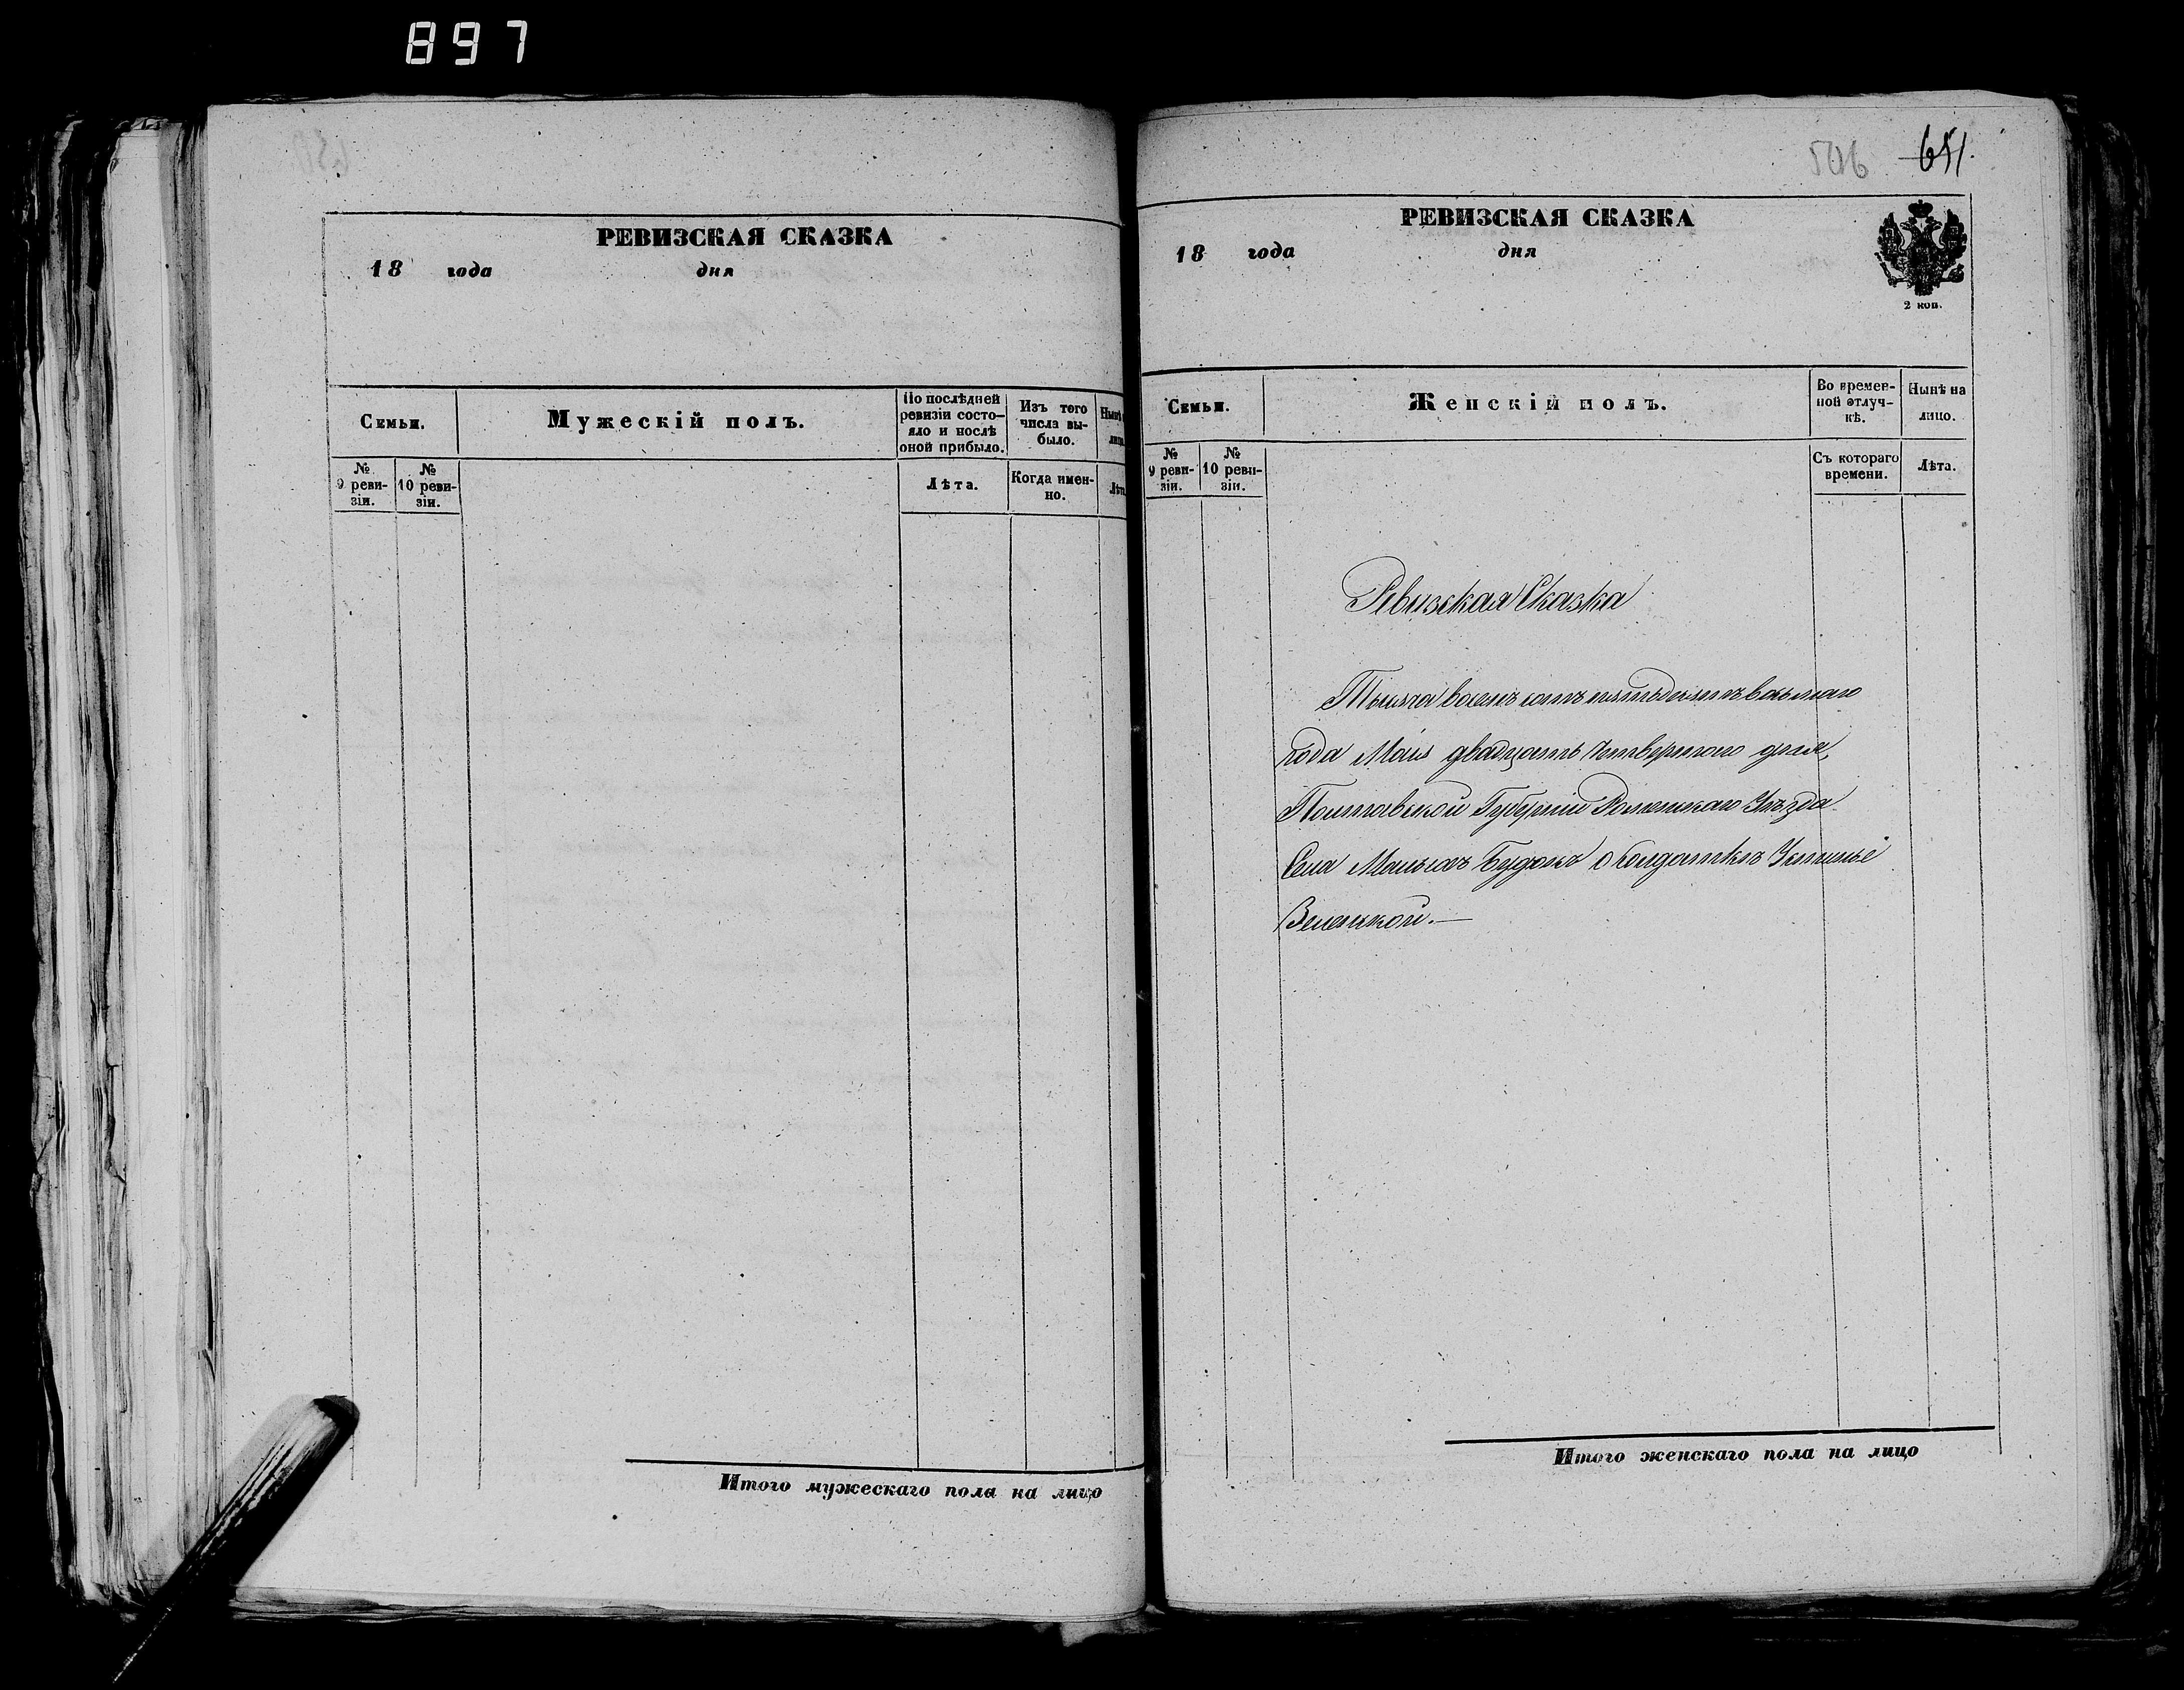 897
РЕВИЗСКАЯ СКАЗКА
18 года дня
Семьи.
Мужескій полъ.
По послѣдней
ревизіи состо-
яло и послѣ
оной прибыло.
Изъ того
числа вы-
было.
Нынѣ
лицо
№
9 реви-
зіи.
№
10 реви-
зіи.
Лѣта.
Когда имен-
но.
Лѣта
Итого мужескаго пола на лицо
506 651.
РЕВИЗСКАЯ СКАЗКА
18 года дня
2 коп.
Семьи.
Женскій полъ.
Во времен-
ной отлуч-
кѣ.
Нынѣ на
лицо.
№
9 реви-
зіи.
№
10 реви-
зіи.
Съ котораго
времени.
Лѣта.
Ревизская Сказка
Тысяча восемь сотъ пятьдесятъ восьмаго
года Маія двадцать четвертого дня,
Полтавской Губерніи Роменскаго Уѣзда
Села Малыхъ Будокъ о Солдаткѣ Устинье
Зеленской.—
Итого женскаго пола на лицо